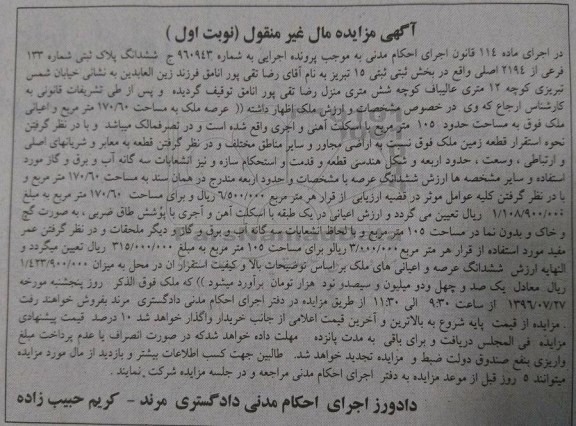 آگهی مزایده مال غیر منقول (نوبت اول )
در اجرای ماده ۱۱۴ قانون اجرای احکام مدنی به موجب پرونده اجرایی به شماره ۹۶۰۹۴۳ ج ششدانگ پلاک ثبتی شماره ۱۳۳
فرعی از ۲۱۹۴ اصلی واقع در بخش ثبتی ثبتی ۱۵ تبریز به نام آقای رضا تقی پور انامق فرزند زین العابدین به نشانی خیابان شمس
تبریزی کوچه ۱۲ متری عالیباف کوچه شش متری منزل رضا تقی پور انامق توقیف گردیده و پس از طی تشریفات قانونی به
کارشناس ارجاع که وی در خصوص مشخصات و ارزش ملک اظهار داشته (( عرصه ملک به مساحت ۱۷۰/۶۰ متر مربع و اعیانی
ملک فوق به مساحت حدود ۱۰۵ متر مربع با اسکلت آهنی و آجری واقع شده است و در تصرفمالک میباشد و با در نظر گرفتن
نحوه استقرار قطعه زمین ملک فوق نسبت به اراضی مجاور و سایر مناطق مختلف و در نظر گرفتن قطعه به معابر و شریانهای اصلی
و ارتباطی ، وسعت ، حدود اربعه و شکل هندسی قطعه و قدمت و استحکام سازه و نیز انشعابات سه گانه آب و برق و گاز مورد
استفاده و سایر مشخصه ها ارزش ششدانگ عرصه با مشخصات و حدود اربعه مندرج در همان سند به مساحت ۱۷۰/۶۰ متر مربع و
با در نظر گرفتن کلیه عوامل موثر در قضیه ارزیابی از قرار هر متر مربع ۶/۵۰۰/۰۰۰ ریال و برای مساحت ۱۷۰/۶۰ متر مربع به مبلغ
۱/۱۰۸/۹۰۰/۰۰۰ ریال تعیین می گردد و ارزش اعیانی در یک طبقه با اسکلت آهن و آجری با پوشش طاق ضربی ، به صورت گچ
و خاک و بدون نما در مساحت ۱۰۵ متر مربع و با لحاظ انشعابات سه گانه آب و برق و گاز و دیگر ملحقات و در نظر گرفتن عمر
مفید مورد استفاده از قرار هر متر مربع ۳/۰۰۰/۰۰۰ ریالو برای مساحت ۱۰۵ متر مربع به مبلغ ۳۱۵/۰۰۰/۰۰۰ ریال تعیین میگردد و
النهایه ارزش ششدانگ عرصه و اعیانی های ملک بر اساس توضیحات بالا و کیفیت استقرار آن در محل به میزان ۱/۴۲۳/۹۰۰/۰۰۰
ریال معادل یک صد و چهل ودو میلیون و سیصدو نود هزار تومان برآورد میشود )) که ملک فوق الذکر روز پنجشنبه مورخه
۱۳۹۶/۰۷/۲۷ از ساعت ۹:۳۰ الی ۱۱:۳۰ از طریق مزایده در دفتر اجرای احکام مدنی دادگستری مرند بفروش خواهند رفت
. مزایده از قیمت پایه شروع به بالاترین و آخرین قیمت اعلامی از جانب خریدار واگذار خواهد شد ۱۰ درصد قیمت پیشنهادی
مزایده فی المجلس دریافت و برای باقی به مدت پانزده مهلت داده خواهد شدکه در صورت انصراف یا عدم پرداخت مبلغ
واریزی بنفع صندوق دولت ضبط و مزایده تجدید خواهد شد. طالبین جهت کسب اطلاعات بیشتر و بازدید از مال مورد مزایده
میتوانند ۵ روز قبل از موعد مزایده به دفتر اجرای احکام مدنی مراجعه و در جلسه مزایده شرکت نمایند .
دادورز اجرای احکام مدنی دادگستری مرند - کریم حبیب زاده